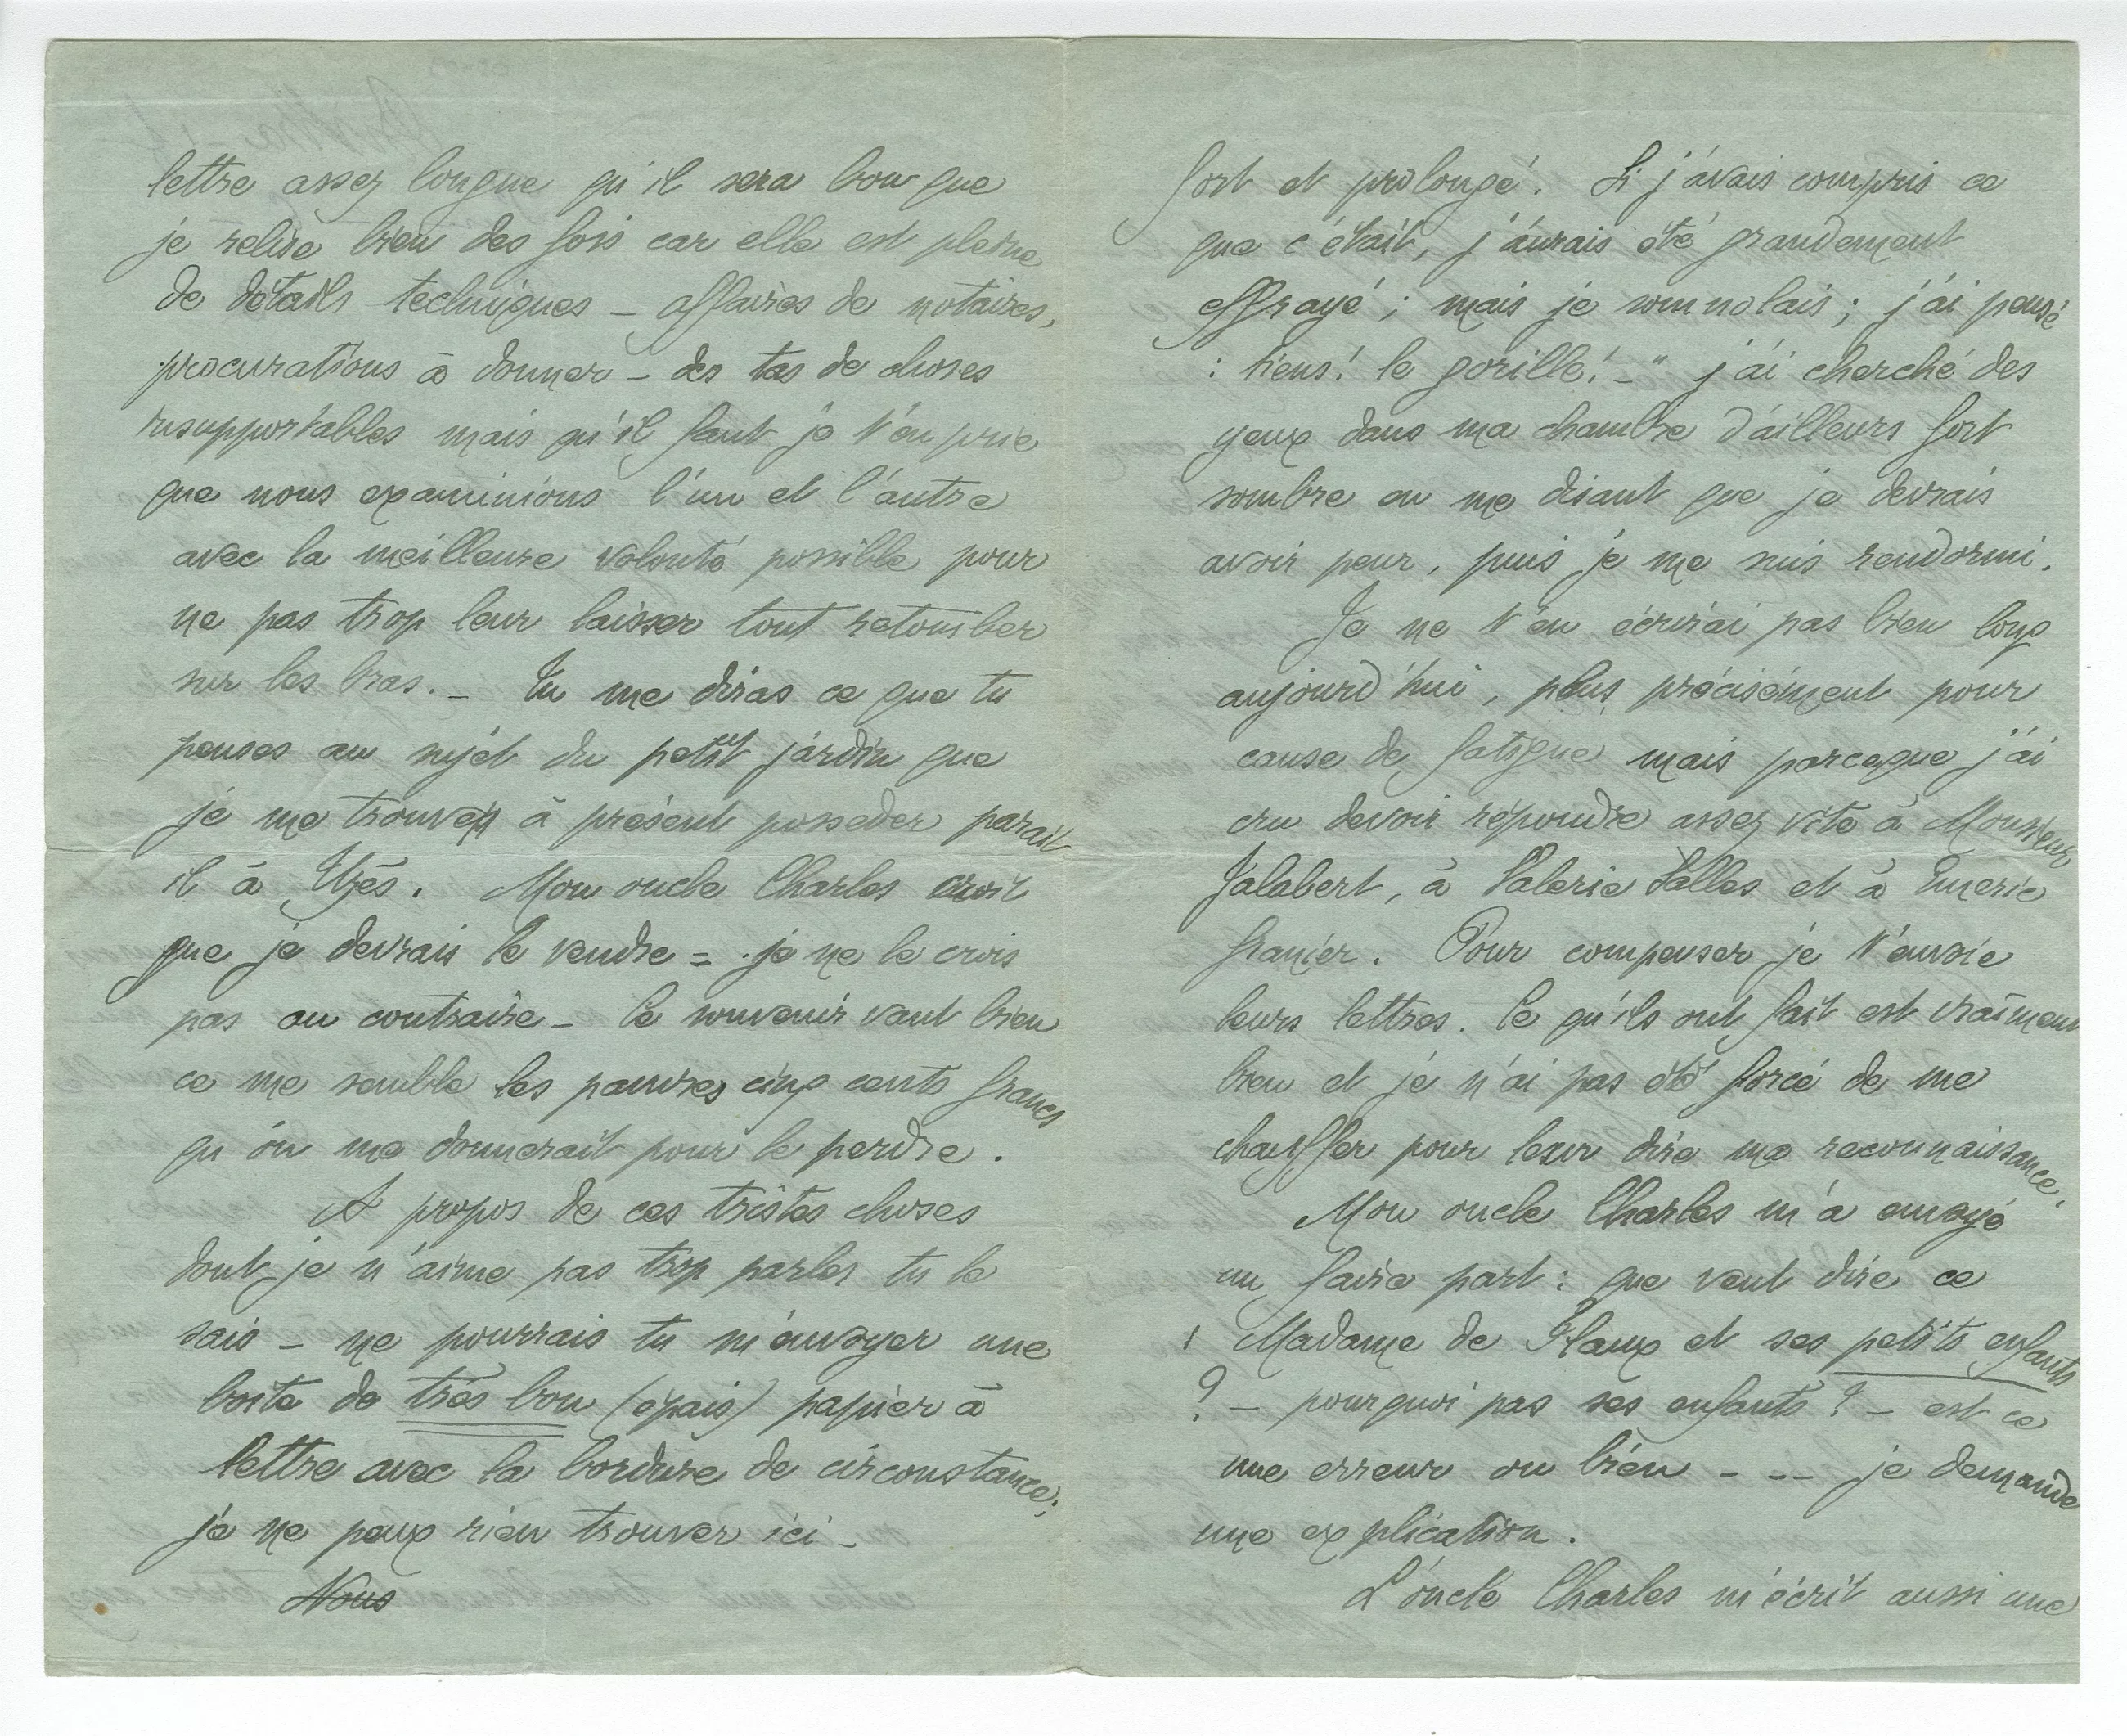 lettre assez longue qu'il sera bon que
je relise bien des fois car elle est pleine
de détails techniques – affaires de notaires,
procurations à donner – des tas de choses
insupportables mais qu'il faut je t'en prie
que nous examinions l'un et l'autre
avec la meilleure volonté possible pour
ne pas trop leur laisser tout retomber
sur les bras. – Tu me diras ce que tu
penses au sujet du petit jardin que
je me trouve à présent posseder parait
il à Uzès. Mon oncle Charles croit
que je devrais le vendre = je ne le crois
pas au contraire – le souvenir vaut bien
ce me semble les pauvres cinq cents francs
qu'on me donnerait pour le perdre.
A propos de ces tristes choses
dont je n'aime pas trop parler tu le
sais – ne pourrais tu m'envoyer une
boite de très bon (épais) papier à
lettre avec la bordure de circonstance;
je ne peux rien trouver ici –
Nous
fort et prolongé. Si j'avais compris ce
que c'était, j'aurais été grandement
effrayé ; mais je somnolais ; j'ai pensé
: tiens! le gorille! –" j'ai cherché des
yeux dans ma chambre d'ailleurs fort
sombre en me disant que je devrais
avoir peur, puis je me suis rendormi.
Je ne t'en écrirai pas bien long
aujourd'hui, plus précisément pour
cause de fatigue mais parceque j'ai
cru devoir répondre assez vite à Monsieur
Jalabert, à Valerie Salles et à Emeric
Granier. Pour compenser je t'envoie
leurs lettres. Ce qu'ils ont fait est vraiment
bien et je n'ai pas été forcé de me
chauffer pour leur dire ma reconnaissance.
Mon oncle Charles m'a envoyé
un faire part : que veut dire ce
Madame de Flaux et ses petits enfants
? – pourquoi pas ses enfants? – est ce
une erreur ou bien - -- je demande
une explication.
L'oncle Charles m'écrit aussi une